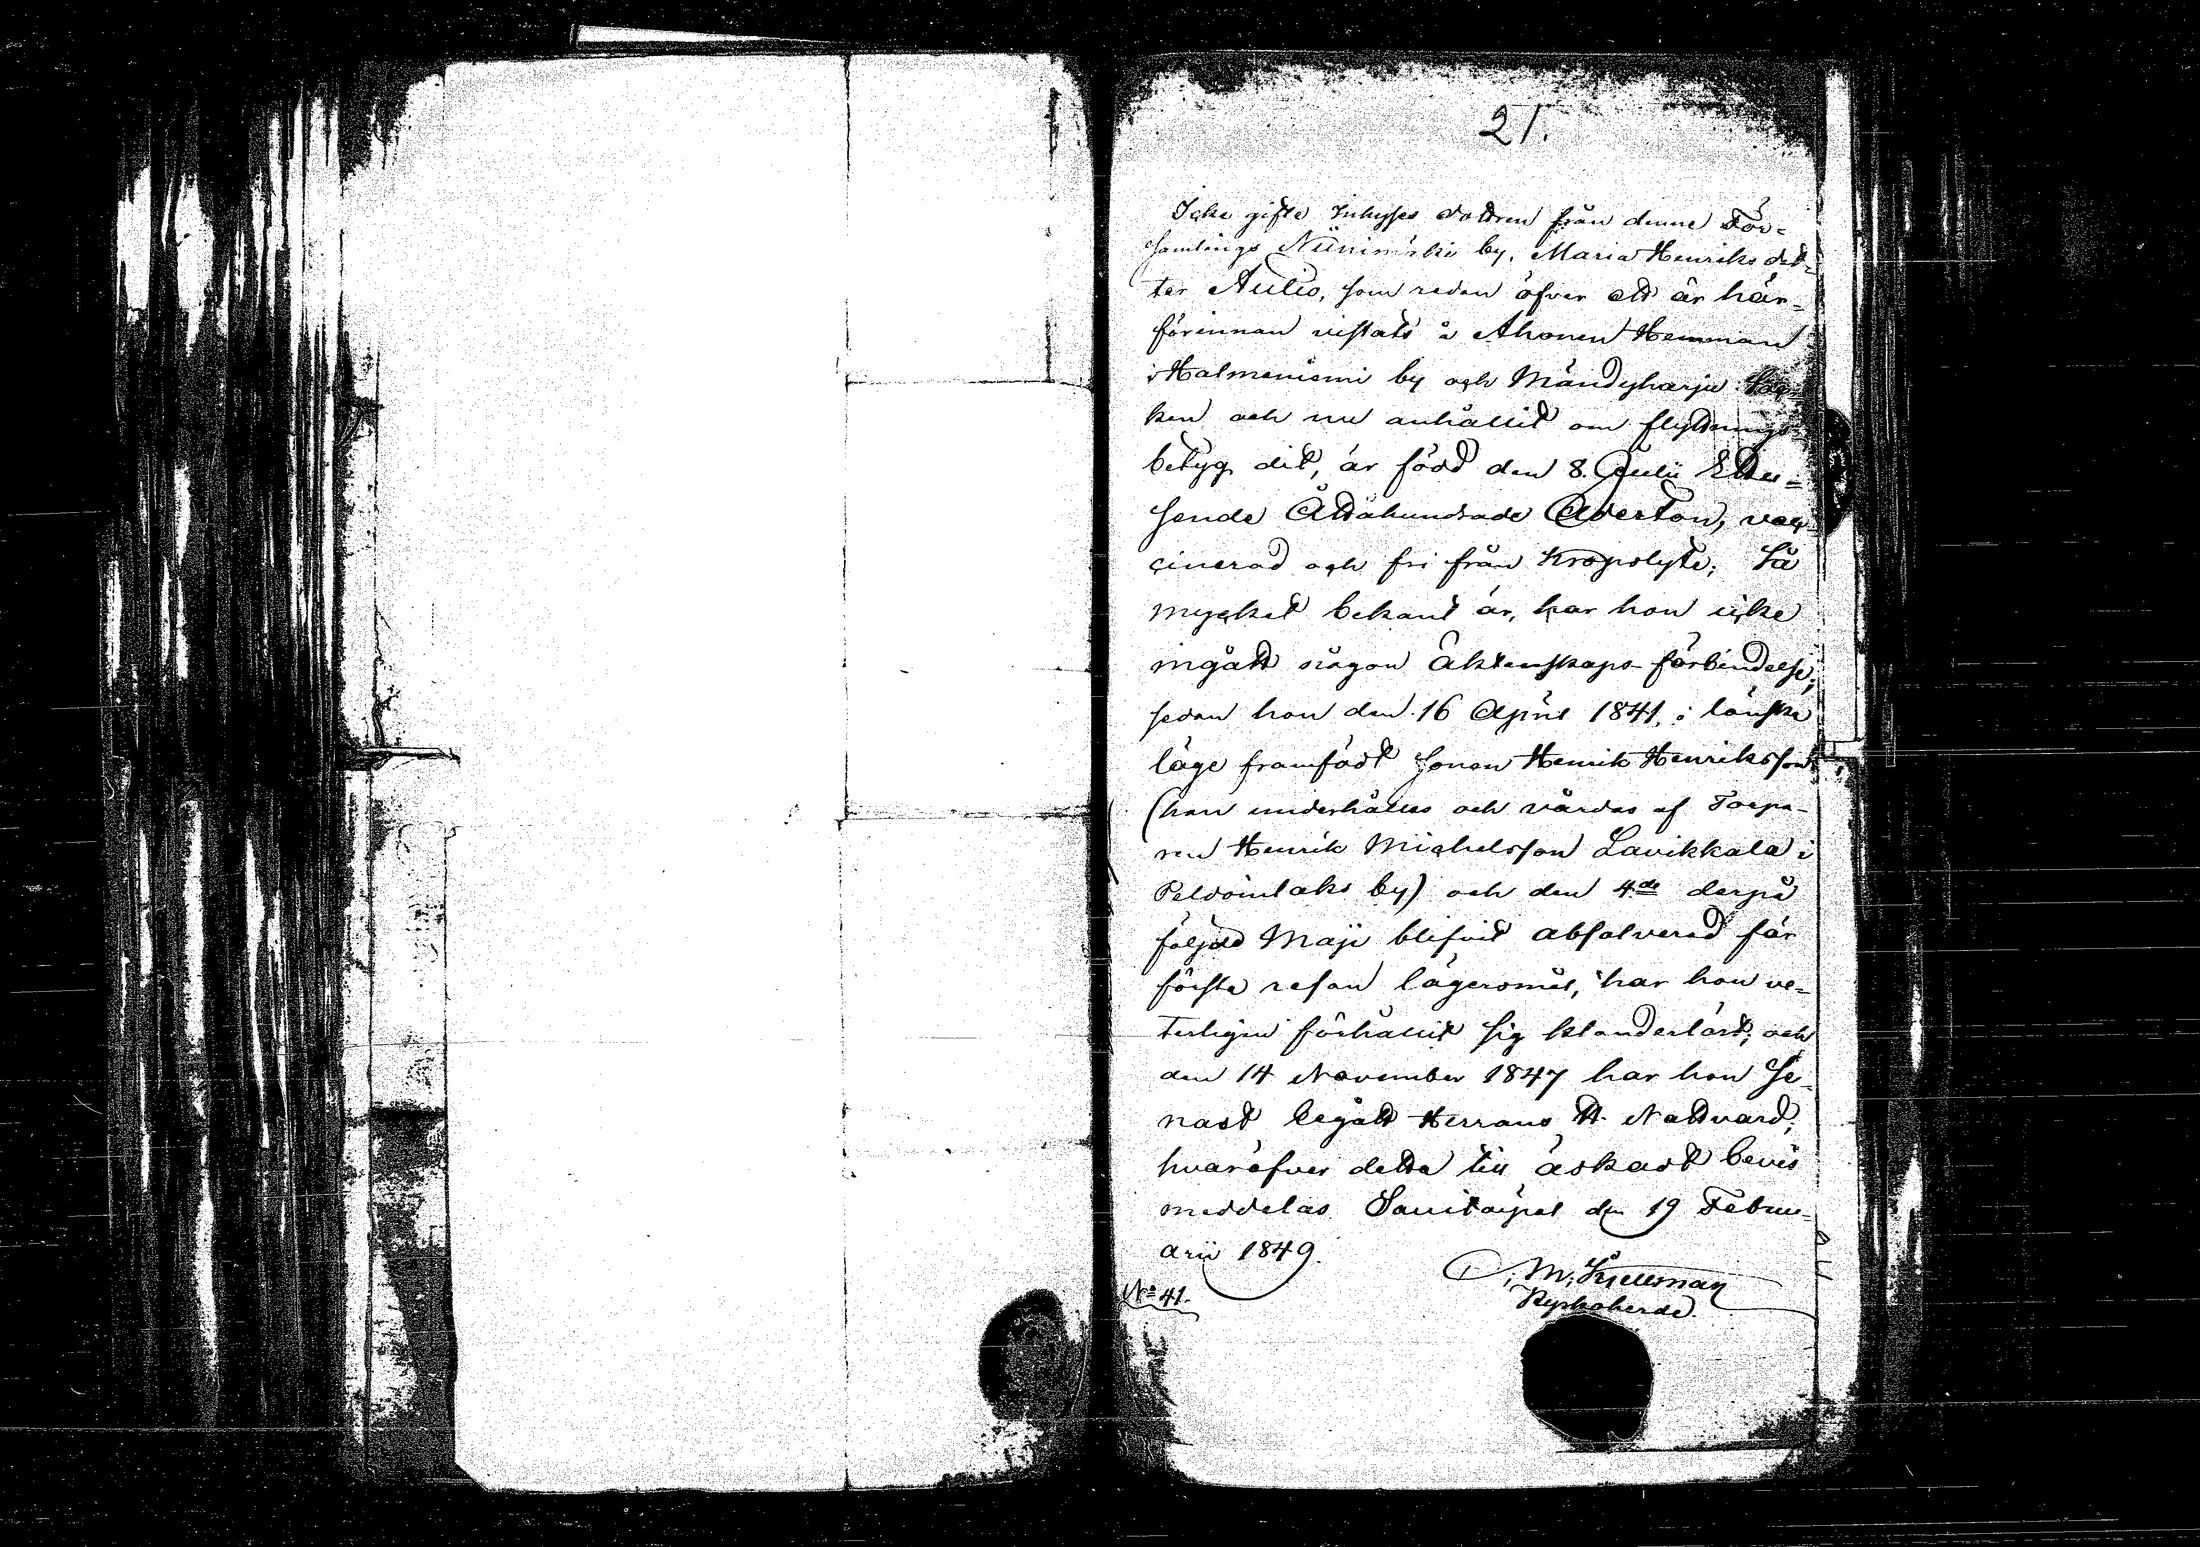 21.
Icke gifte Inhyses dottren från denne För=
samlings Niinimäki by, Maria Henriks dot=
ter Aulio, som redan öfver ett år här=
förinnan vistats å Ahonen Hemman
i Halmeniemi by och Mändyharju Soc=
ken och nu anhållit om flyttnings=
betyg dit, är född den 8. Julii Ettu=
sende Åttahundrade Aderton, vac=
cinerad och fri från Kroppslyte; Så
mycket bekant är, har hon icke
ingått någon Äktenskaps förbindelse;
sedan hon den 16 April 1841, i lönska
läge framfödt Sonen Henrik Henriksson
(han underhålles och vårdas af Torpa-
ren Henrik Michelsson Lavikkala i
Peldoinlaks by) och den 4de derpå
följde Maji blifvit absolverad för
första resan lägersmål, har hon ve=
terligen förhållit sig klanderlöst; och
den 14 November 1847 har hon se=
nast begått Herrans H. Nattvard,
hvaröfver detta till äskadt bevis
meddelas. Savitaipal den 19 Febru=
arii 1849.
M. Kjellman
Kyrkoherde.
No 41.